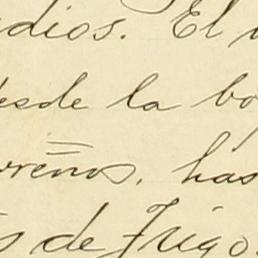 dios. El
desde la bo
rreños, has
s de Trigo.